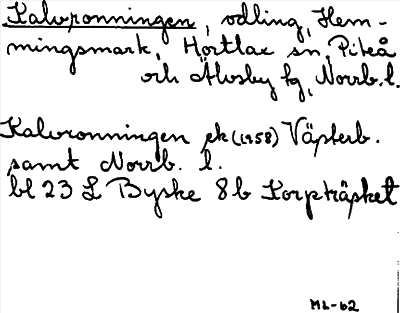 Kalvronningen, odling, Hem-
mingsmark, Hortlax sn, Piteå
och Älvsby tg, Norrb. l.
Kalvronningen ek (1958) Västerb.
samt Norrb. l.
bl 23 L Byske 8b Korpträsket
ML-62